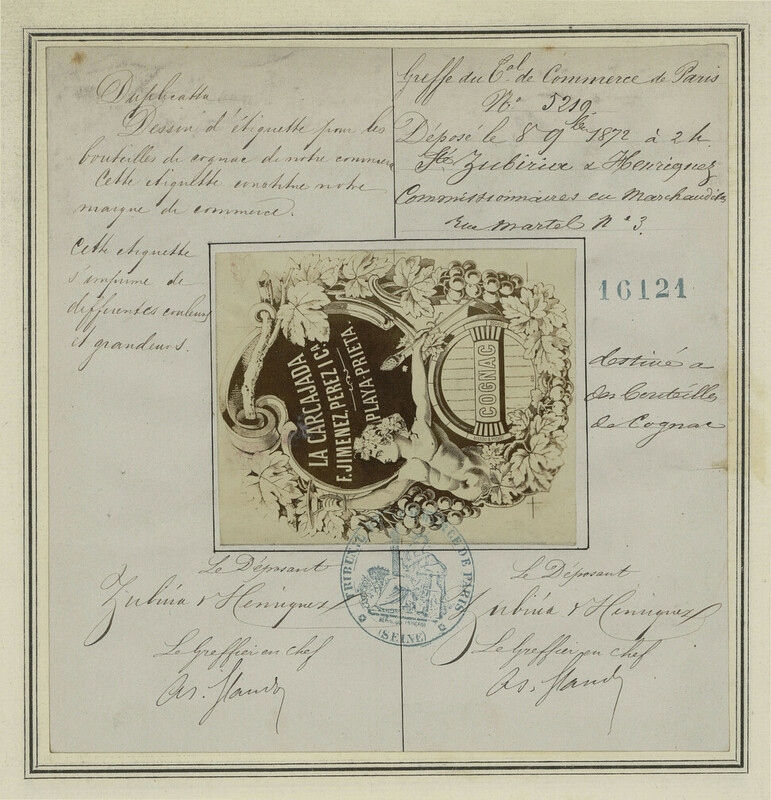 Duplicata
Dessin d'étiquette pour les
bouteilles de cognac de notre commerce
Cette etiquette constitue notre
marque de commerce.
Cette etiquette
s'imprime de
differentes couleurs
et grandeurs.
Greffe du Cal de Commerce de Paris
N° 5219
Déposé le 8 9bre 1872 à 2 h.
Sté Zubiria & Henriquez
Commissionnaires en Marchandises
rue Martel N° 3.
16121
destiné a
des bouteilles
de Cognac
LA CARCAJADA
F. JIMENEZ, PEREZ I CA
PLAYA-PRIETA.
COGNAC
TRIBUNAL DE COMMERCE DE PARIS
(SEINE)
Le Déposant
Zubiria & Henriquez
Le Greffier en chef
Le Déposant
Zubiria & Henriquez
Le Greffier en chef